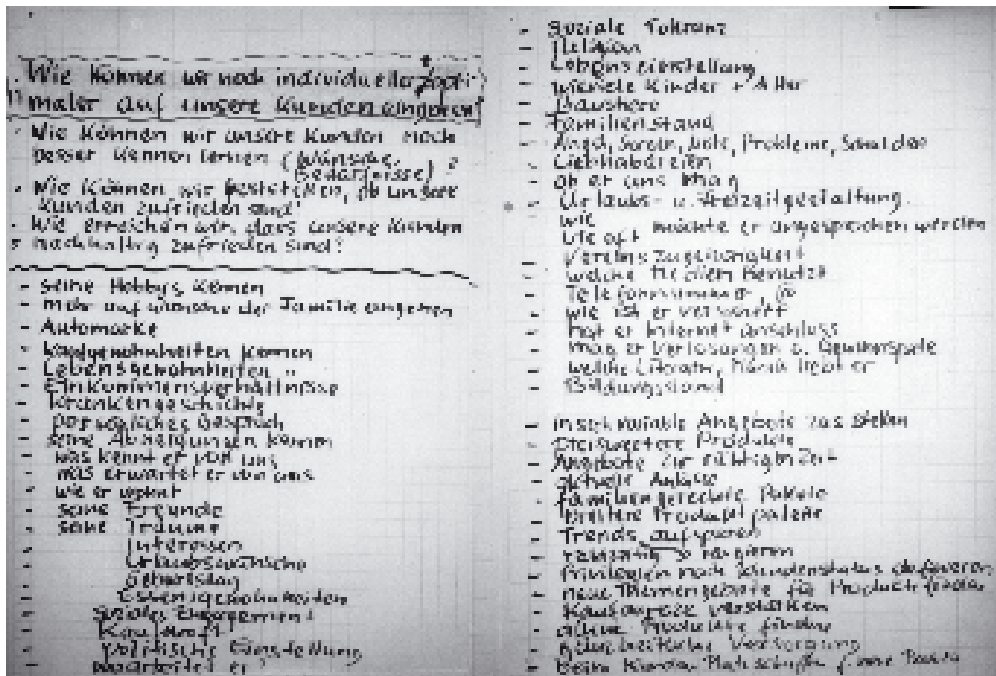 Wie können wir noch individueller, opti-
maler auf unsere Kunden eingehen?
Wie können wir unsere Kunden noch
besser kennen lernen (Wünsche,
Bedürfnisse) ?
Wie können wir feststellen, ob unsere
Kunden zufrieden sind?
Wie erreichen wir, dass unsere Kunden
nachhaltig zufrieden sind?
- seine Hobbys kennen
- mehr auf Wünsche der Familie eingehen
- Automarke
- Kaufgewohnheiten kennen
- Lebensgewohnheiten "
- Einkommensverhältnisse
- Krankengeschichte
- persönliches Gespräch
- seine Abneigungen kennen
- was kennt er von uns
- was erwartet er von uns
- wie er wohnt
- seine Freunde
- seine Träume
- Interessen
- Urlaubswünsche
- Geburtstag
- Essensgewohnheiten
- soziales Engagement
- Kaufkraft
- politische Einstellung
- wo arbeitet er
- soziale Toleranz
- Religion
- Lebenseinstellung
- wieviele Kinder + Alter
- Haustiere
- Familienstand
- Angst, Sorgen, Nöte, Probleme, Schulden
- Liebhabereien
- ob er uns mag
- Urlaubs- u. Freizeitgestaltung
- wie
- wie oft möchte er angesprochen werden
- Vereinszugehörigkeit
- welche Medien benutzt
- Telefonnummer,
- wie ist er versichert
- hat er Internet anschluss
- mag er Verlosungen o. Gewinnspiele
- welche Literatur, Musik liebt er
- Bildungsstand
- variable Angebote
- Preiswertere Produkte
- Angebote zur richtigen Zeit
- aktuelle Anlässe
- familiengerechte Pakete
- breitere Produktpalette
- Trends aufspüren
- zu reagieren
- Privilegien nach Kundenstatus
- neue Themengebiete für Produkte finden
- Kaufanreize verstärken
- Produkte finden
- Versorgung
- Beim Kunden